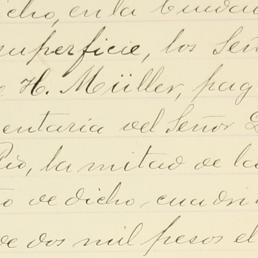 dicho, en la ciudad
superficie, los Señ
H. Müller, pag
entaria del Señor
Rio, la mitad de la
to de dicho cuadri
de dos mil pesos el